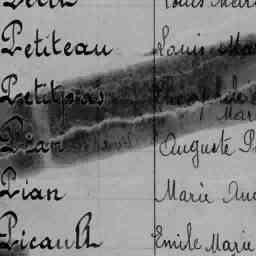 Petiteau Louis Ma
Petitpas
Mar
Pian Auguste P
Pian Marie Aug
Picault Emile Marie